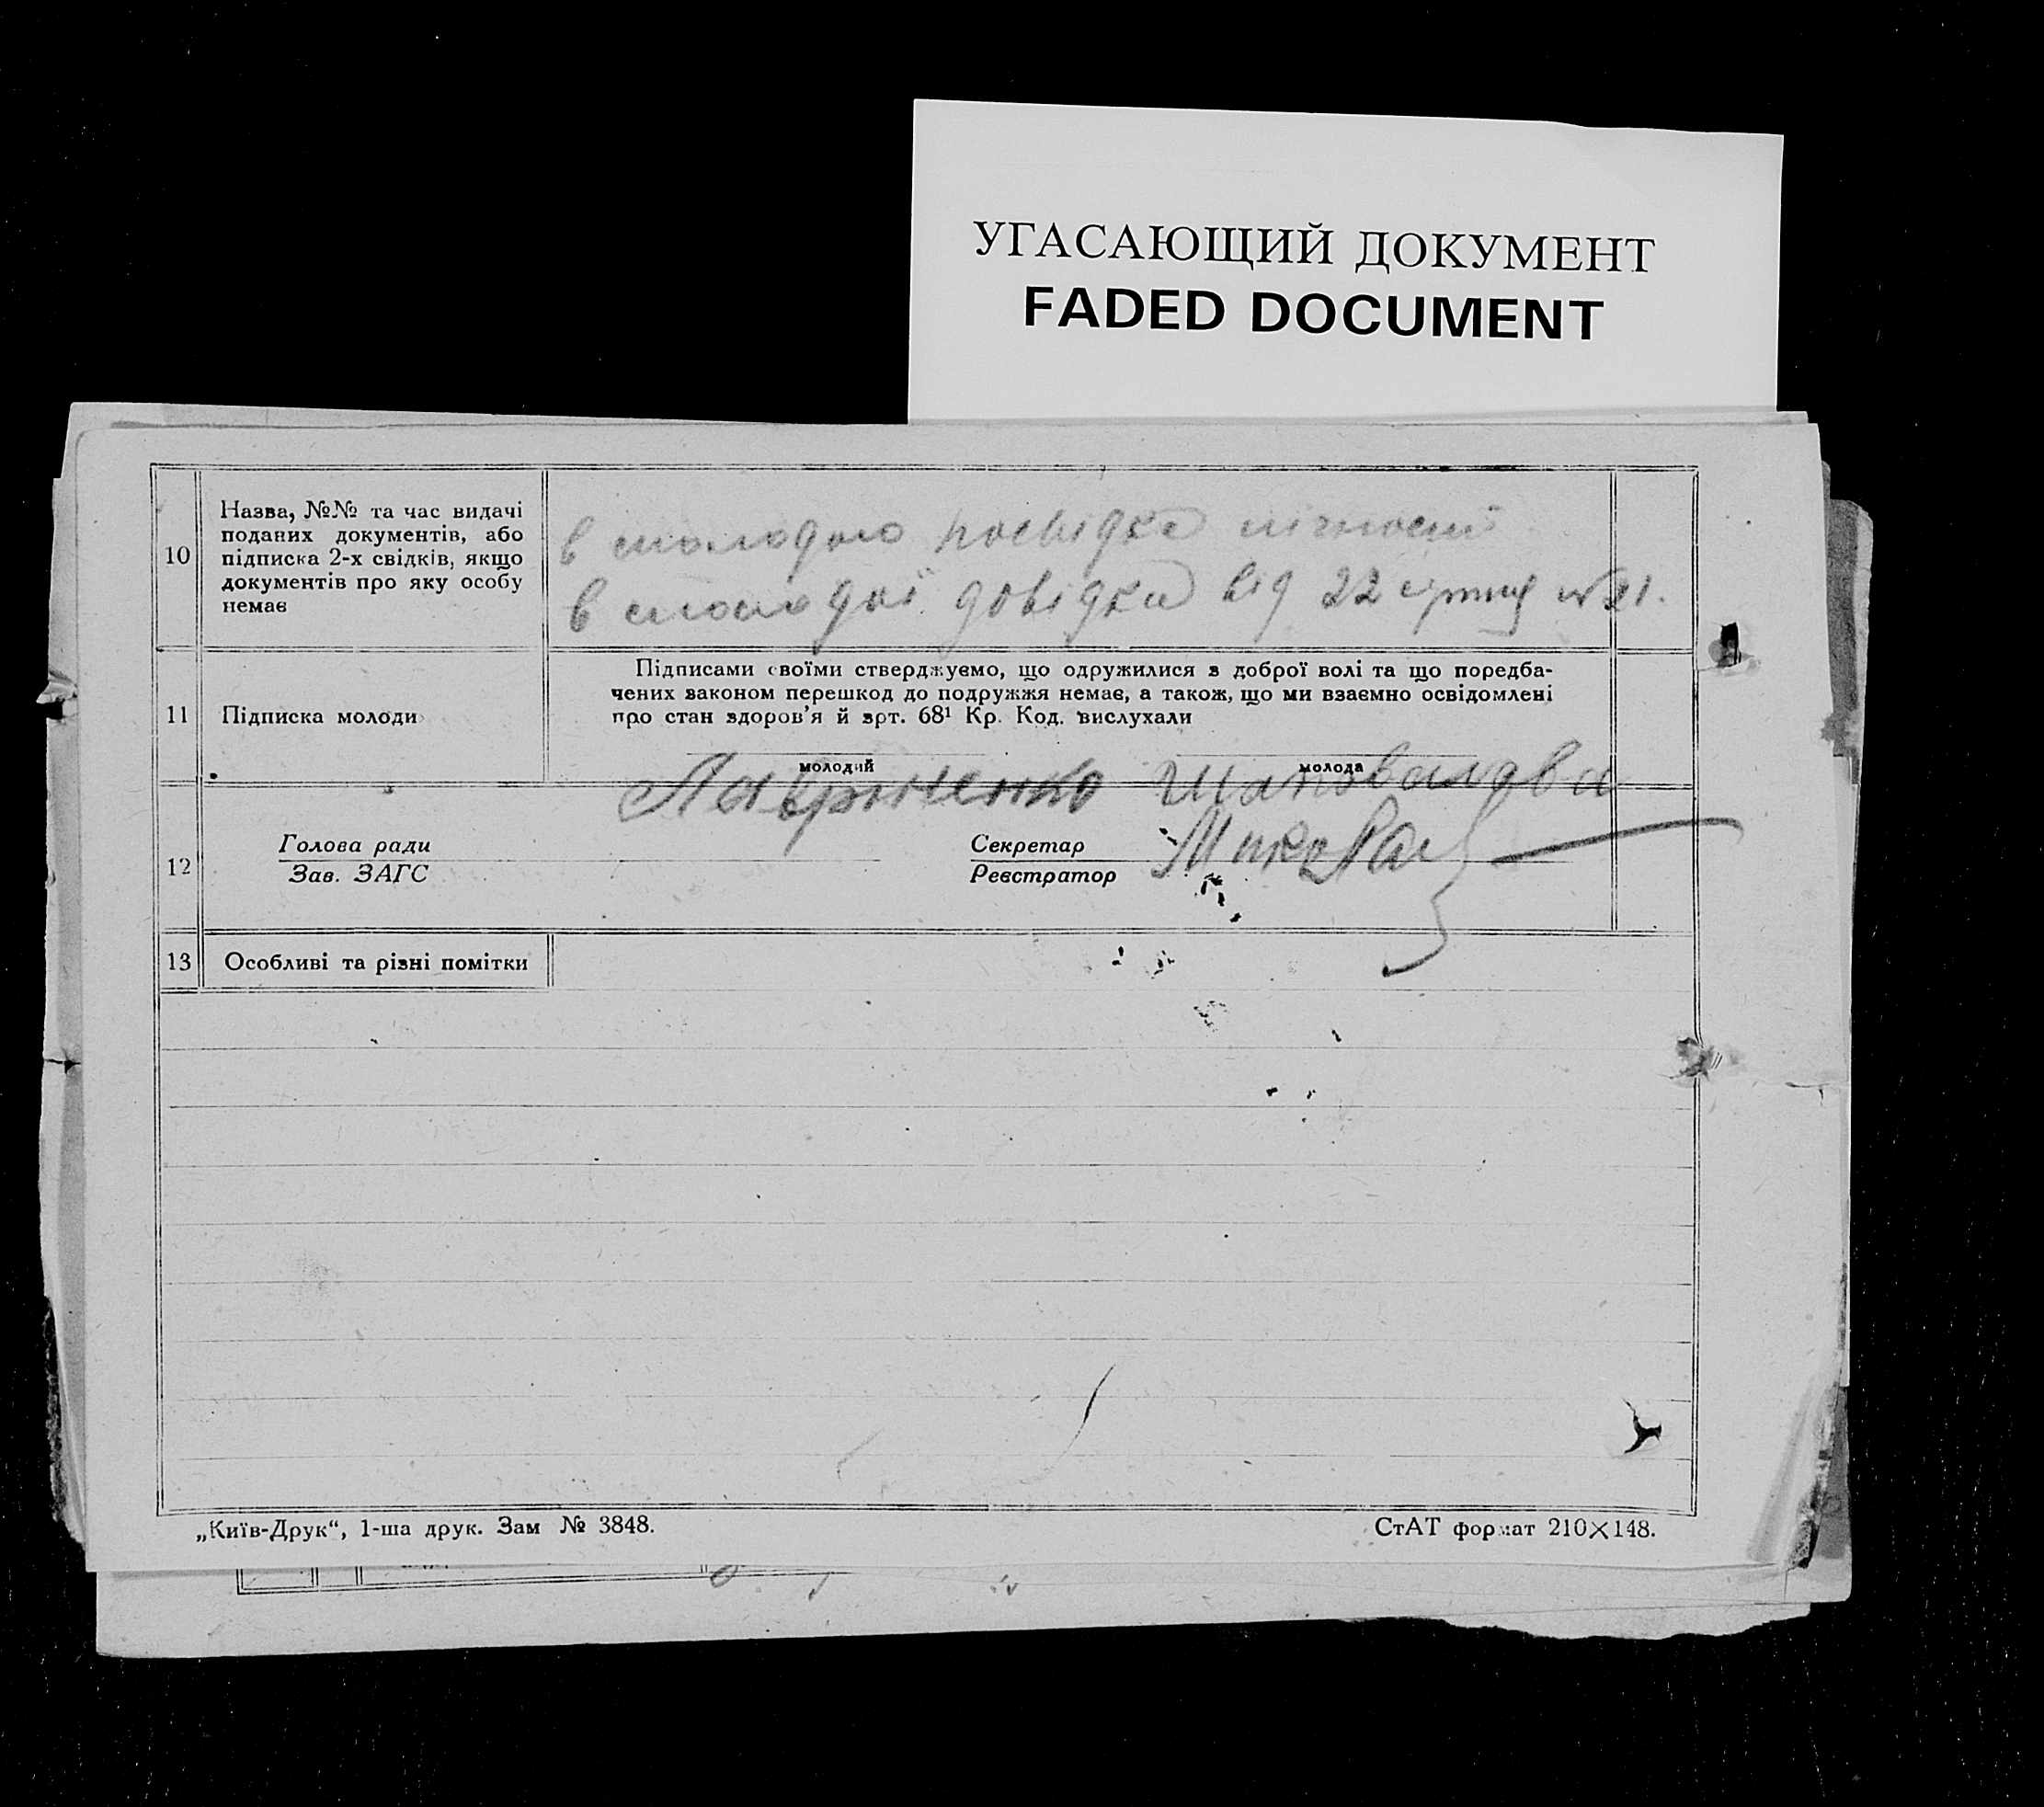 УГАСАЮЩИЙ ДОКУМЕНТ
FADED DOCUMENT
10
Назва, №№ та час видачі
поданих документів, або
підписка 2-х свідків, якщо
документів про яку особу
немає
в молодого посвідка
в молодої довідка від 22 серпня №21.
11
Підписка молоди
Підписами своїми стверджуємо, що одружилися з доброї волі та що поредба-
чених законом перешкод до подружжя немає, а також, що ми взаємно освідомлені
про стан здоров'я й арт. 68¹ Кр. Код. вислухали
молодий
молода
Лавріненко Шаповалова
12
Голова ради
Зав. ЗАГС
Секретар
Реєстратор
13
Особливі та різні помітки
„Київ-Друк“, 1-ша друк. Зам № 3848.
СтАТ формат 210×148.